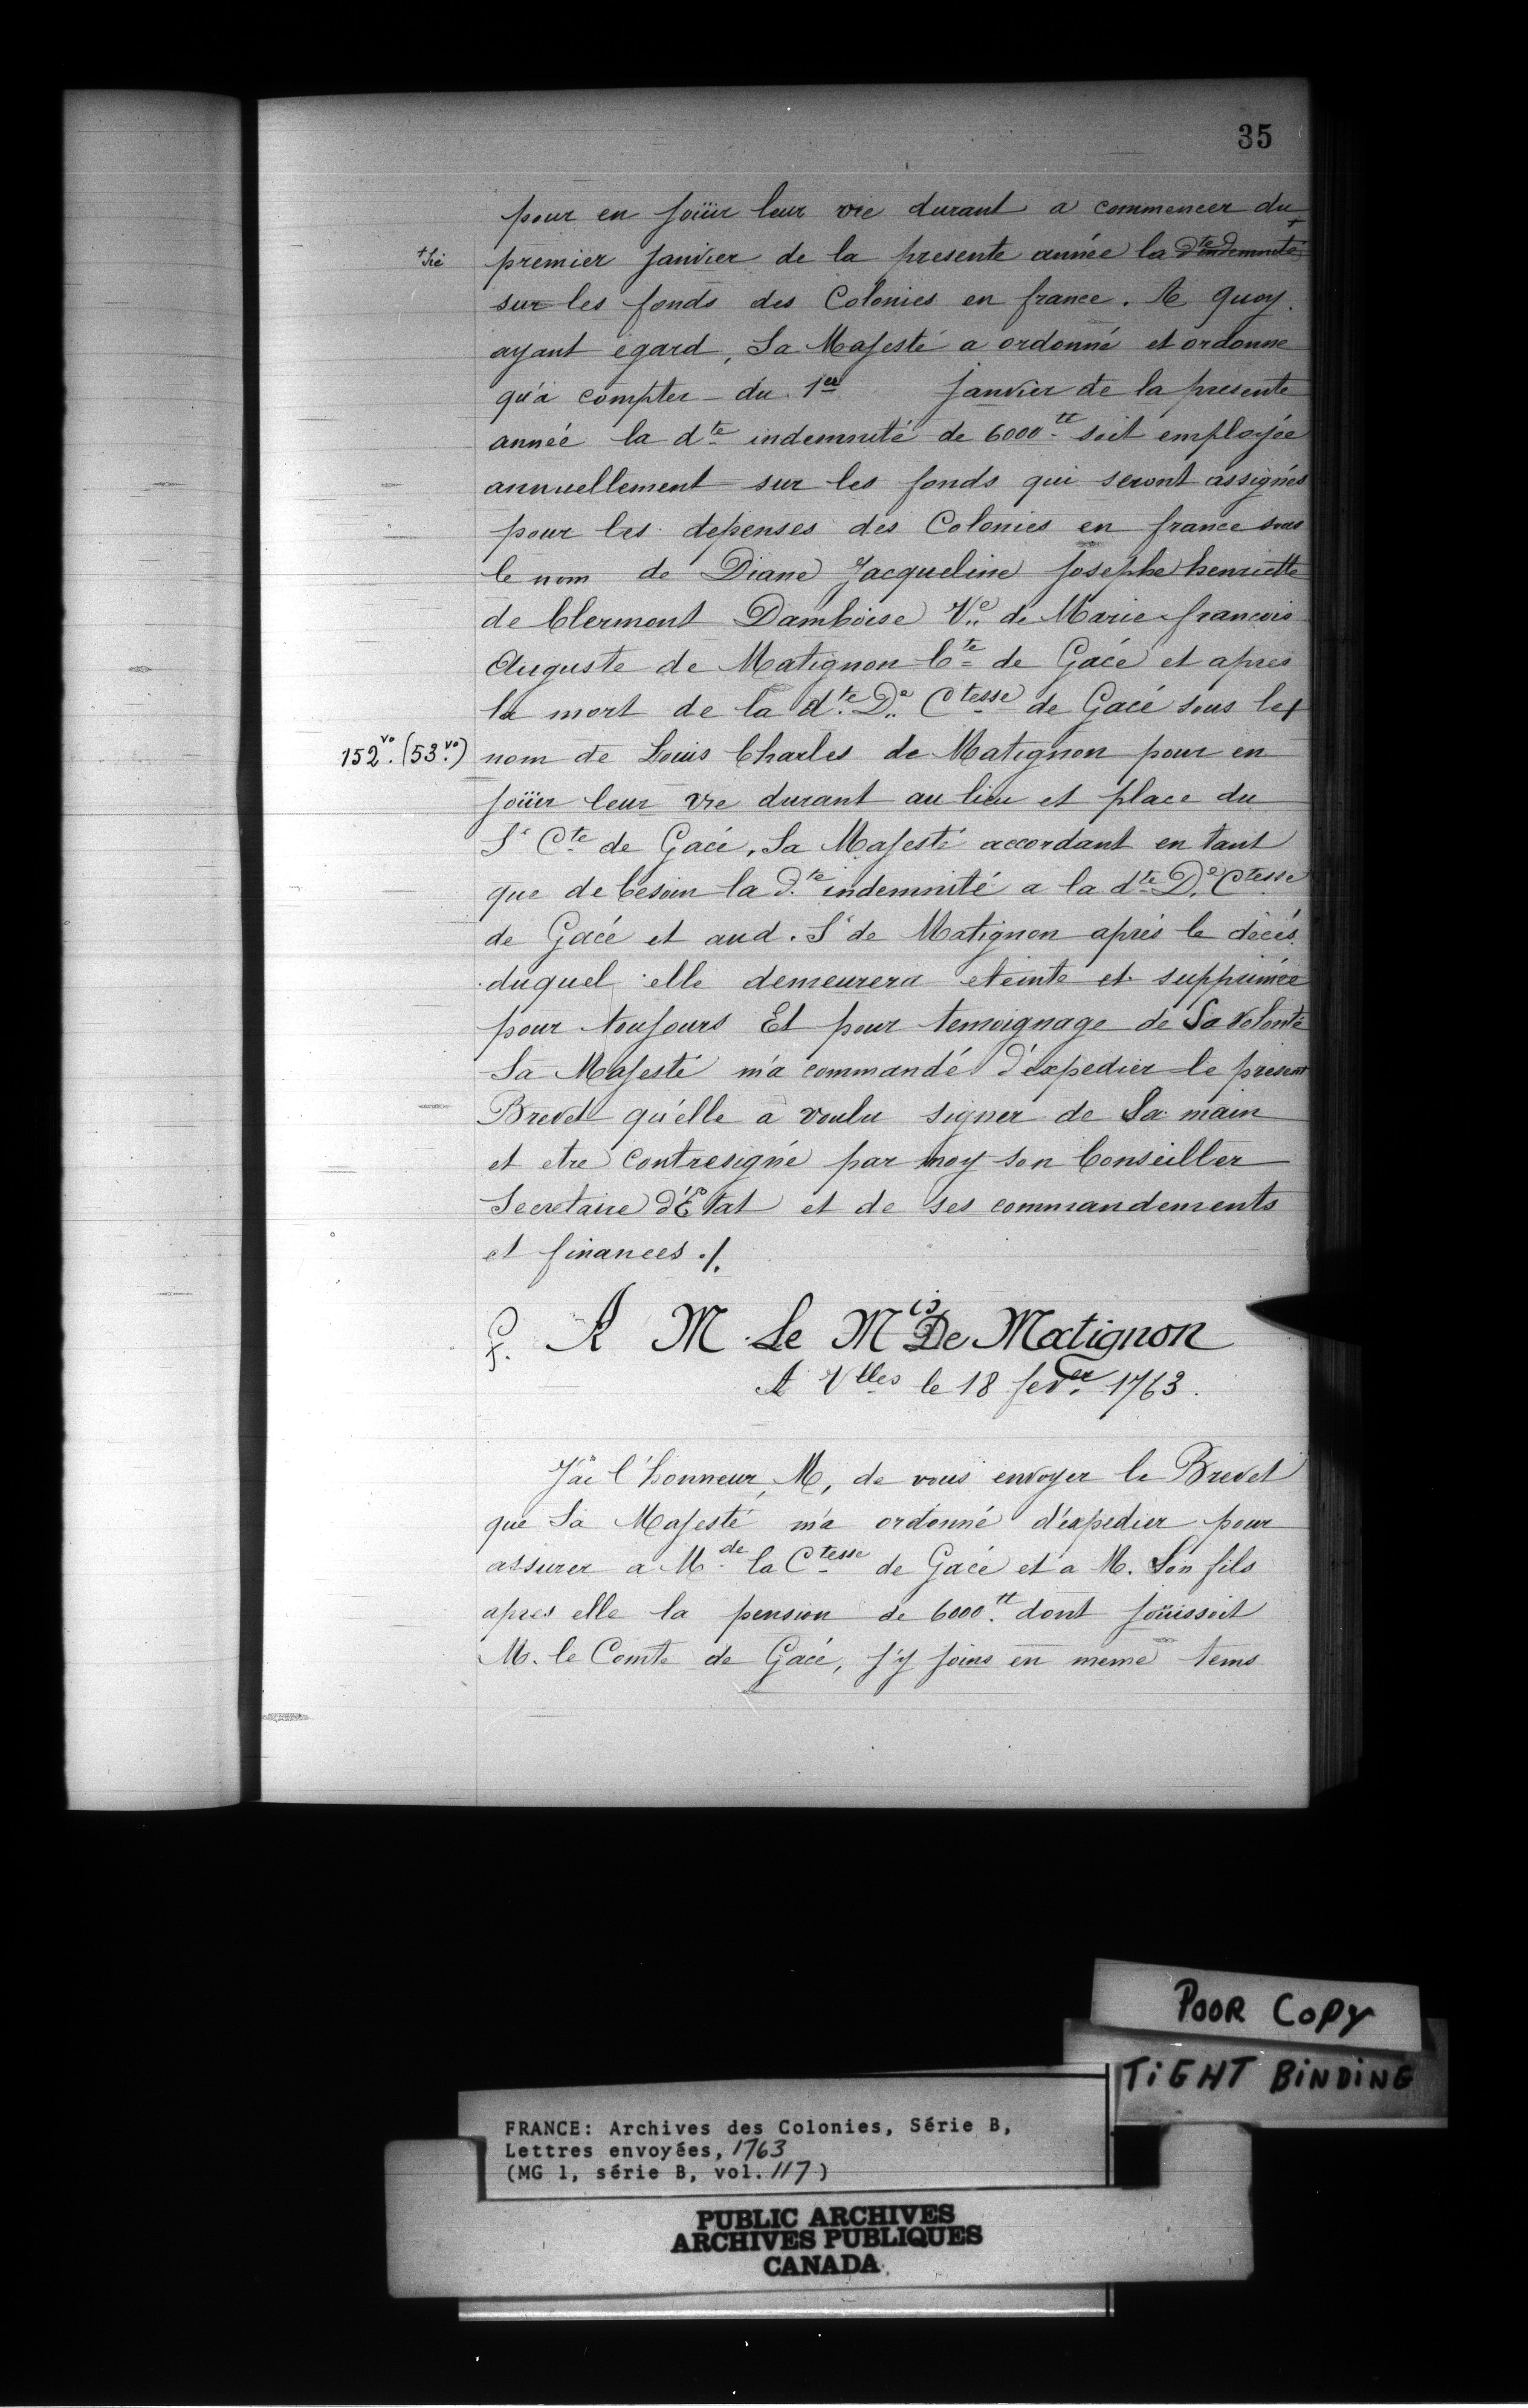 35
pour en joüir leur vie durant a commencer du
+ premier janvier de la presente année la dte indemnité
sur les fonds des Colonies en france. A quoy
ayant egard, Sa Majesté a ordonné et ordonne
qu'à compter du 1er janvier de la presente
année la dte indemnité de 6000tt soit employée
annuellement sur les fonds qui seront assignés
pour les depenses des Colonies en france sous
le nom de Diane Jacqueline Josephe henriette
de Clermont Damboise Ve de Marie françois
Auguste de Matignon Cte de Gacé et apres
la mort de la dte De Ctesse de Gacé sous le
152vo. (53.vo) nom de Louis Charles de Matignon pour en
joüir leur vie durant au lieu et place du
Sr Cte de Gacé, Sa Majesté accordant en tant
que de besoin la dte indemnité a la dte De Ctesse
de Gacé et aud. Sr de Matignon après le décés
duquel elle demeurera eteinte et supprimée
pour toujours Et pour temoignage de Sa Volonté
Sa Majesté m'a commandé d'expedier le present
Brevet qu'elle a voulu signer de Sa main
et etre contresigné par moy son Conseiller
Secretaire d'Etat et de ses commandements
et finances ./.
A M. Le Mis De Matignon
A Vlles le 18 fever 1763.
J'ai l'honneur, M, de vous envoyer le Brevet
que Sa Majesté m'a ordonné d'expedier pour
assurer a Mde la Ctesse de Gacé et a M. Son fils
apres elle la pension de 6000tt dont joüissoit
M. le Comte de Gacé, j'y joins en meme tems
POOR COPY
TIGHT BINDING
FRANCE: Archives des Colonies, Série B,
Lettres envoyées, 1763
(MG 1, série B, vol. 117)
PUBLIC ARCHIVES
ARCHIVES PUBLIQUES
CANADA